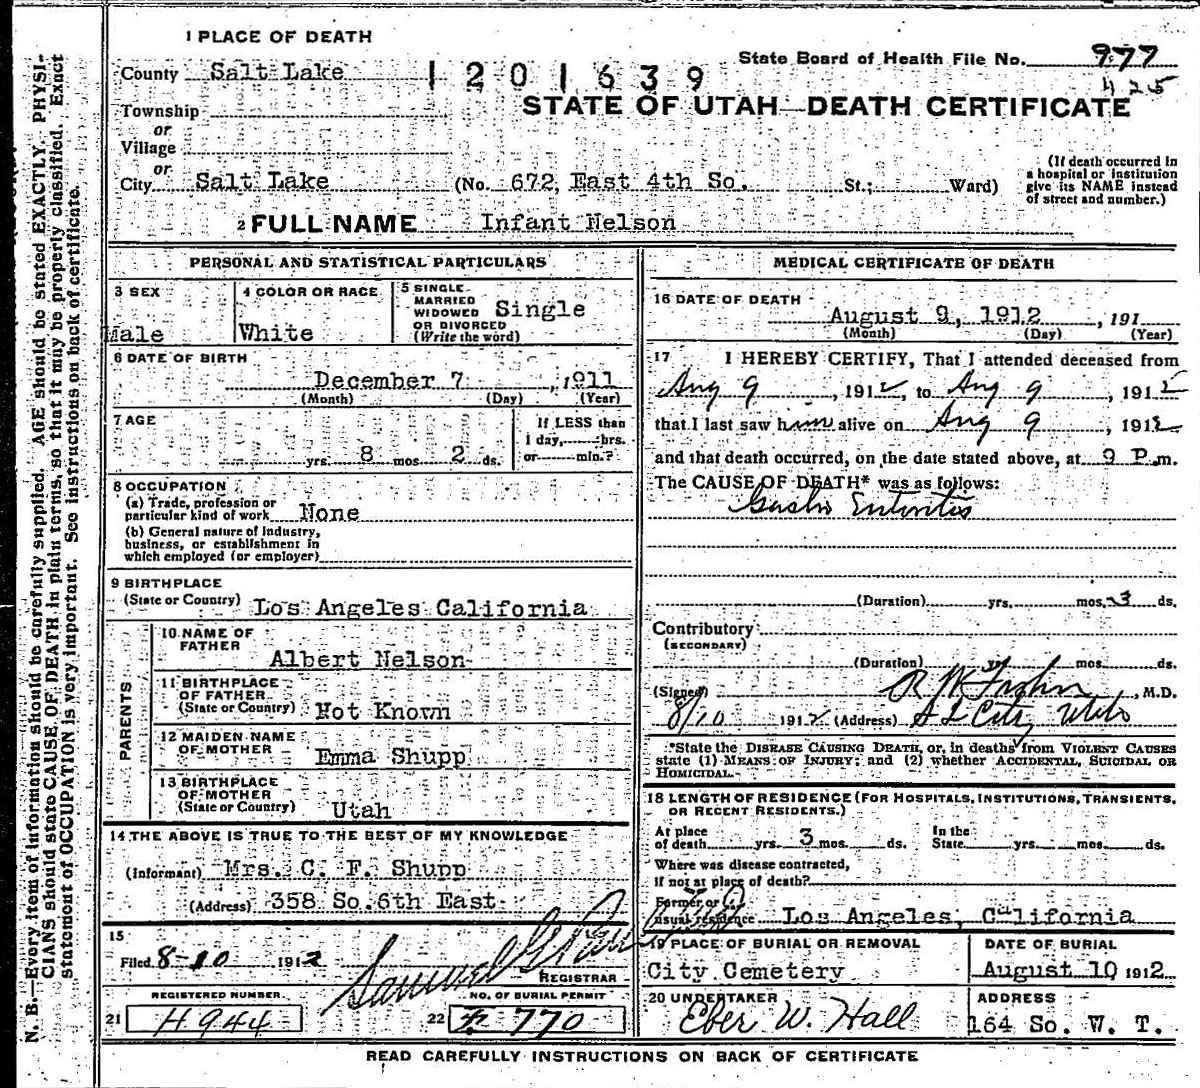 1 PLACE OF DEATH
State Board of Health File No. 977
County Salt Lake 1201639
425
STATE OF UTAH—DEATH CERTIFICATE
Township
or
Village
or
City Salt Lake (No. 672, East 4th So. St.; Ward)
(If death occurred in
a hospital or institution
give its NAME instead
of street and number.)
2 FULL NAME Infant Nelson
PERSONAL AND STATISTICAL PARTICULARS
3 SEX
Male
4 COLOR OR RACE
White
5 SINGLE
MARRIED
WIDOWED
OR DIVORCED
(Write the word)
Single
6 DATE OF BIRTH
December 7, 1911
(Month) (Day) (Year)
7 AGE
yrs. 8 mos. 2 ds.
If LESS than
1 day, hrs.
or min.?
8 OCCUPATION
(a) Trade, profession or
particular kind of work None
(b) General nature of industry,
business, or establishment in
which employed (or employer)
9 BIRTHPLACE
(State or Country) Los Angeles California
PARENTS
10 NAME OF
FATHER
Albert Nelson
11 BIRTHPLACE
OF FATHER
(State or Country) Not Known
12 MAIDEN NAME
OF MOTHER Emma Shupp
13 BIRTHPLACE
OF MOTHER
(State or Country) Utah
14 THE ABOVE IS TRUE TO THE BEST OF MY KNOWLEDGE
(Informant) Mrs. C. F. Shupp
(Address) 358 So. 6th East
15
Filed 8-10 1912 Samuel G Paul
REGISTRAR
REGISTERED NUMBER
21 H944
NO. OF BURIAL PERMIT
22 770
MEDICAL CERTIFICATE OF DEATH
16 DATE OF DEATH
August 9, 1912, 191
(Month) (Day) (Year)
17 I HEREBY CERTIFY, That I attended deceased from
Aug 9, 1912, to Aug 9, 1912
that I last saw him alive on Aug 9, 1912
and that death occurred, on the date stated above, at 9 P.m.
The CAUSE OF DEATH* was as follows:
Gastro Enteritis
(Duration) yrs. mos. 3 ds.
Contributory
(SECONDARY)
(Duration) yrs. mos. ds.
(Signed) R W , M.D.
8/10 1912 (Address) S L City Utah
*State the DISEASE CAUSING DEATH, or, in deaths from VIOLENT CAUSES
state (1) MEANS OF INJURY; and (2) whether ACCIDENTAL, SUICIDAL OR
HOMICIDAL.
18 LENGTH OF RESIDENCE (FOR HOSPITALS, INSTITUTIONS, TRANSIENTS,
OR RECENT RESIDENTS.)
At place
of death yrs. 3 mos. ds.
In the
State yrs. mos. ds.
Where was disease contracted,
if not at place of death?
Former or
usual residence Los Angeles, California
19 PLACE OF BURIAL OR REMOVAL
City Cemetery
DATE OF BURIAL
August 10 1912
20 UNDERTAKER
Eber W. Hall
ADDRESS
164 So. W. T.
READ CAREFULLY INSTRUCTIONS ON BACK OF CERTIFICATE
N. B.—Every item of information should be carefully supplied. AGE should be stated EXACTLY. PHYSI-
CIANS should state CAUSE OF DEATH in plain terms, so that it may be properly classified. Exact
statement of OCCUPATION is very important. See instructions on back of certificate.